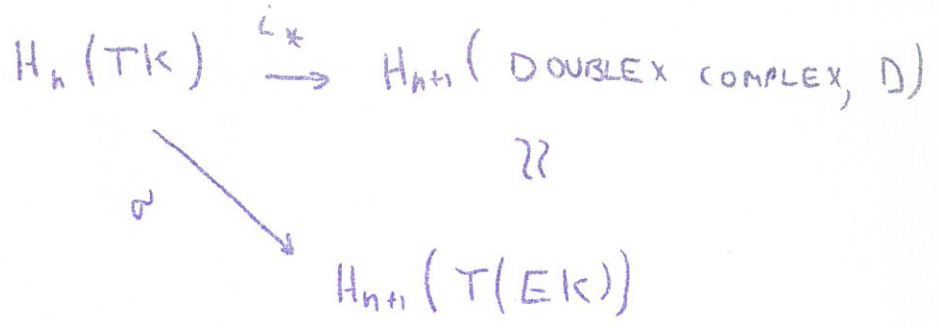 Hₙ(TK) i_* → Hₙ₊₁(DOUBLEX COMPLEX, D)
≀≀
σ ↘
Hₙ₊₁(T(EK))